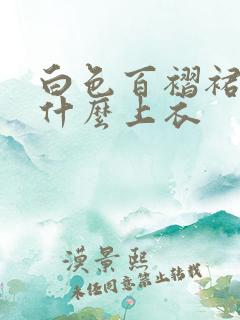 白色百褶裙
什麼上衣
漠景熙
未经同意禁止转载